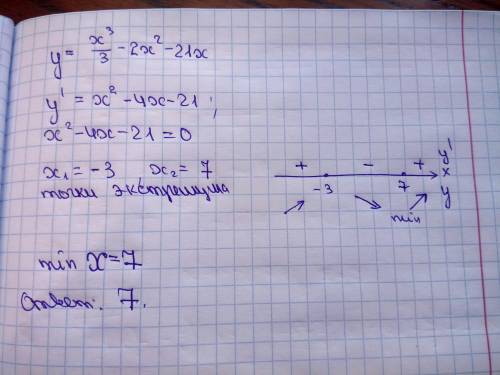 y = x³/3 - 2x² - 21x
y' = x² - 4x - 21 ;
x² - 4x - 21 = 0
x₁ = -3 , x₂ = 7
точки экстремума
+ - + y'
-3 7 x
↗ ↘ ↗ y
min
min x = 7
Ответ: 7.